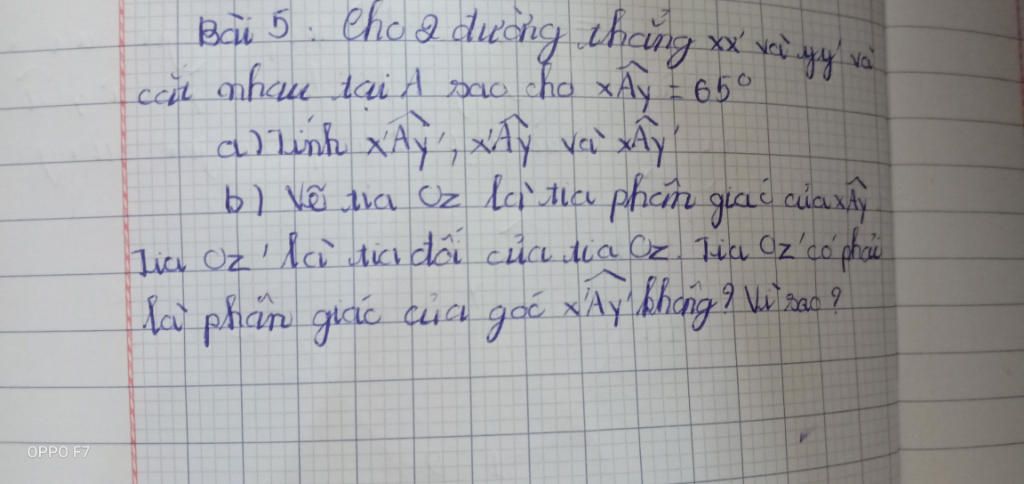 Bài 5: Cho 2 đường thẳng xx' và yy' và
cắt nhau tại A sao cho xÂy = 65°
a) Tính x'Ây', x'Ây và xÂy'
b) Vẽ tia Oz là tia phân giác của xÂy
Tia Oz' là tia đối của tia Oz. Tia Oz' có phải
là phân giác của góc x'Ây' không? Vì sao?
OPPO F7